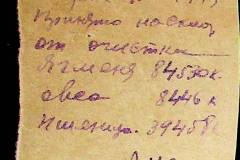 Принято на склад
от очистки
Ячменя 84530 к.
овса 8446 к
Пшеница. 39458 к